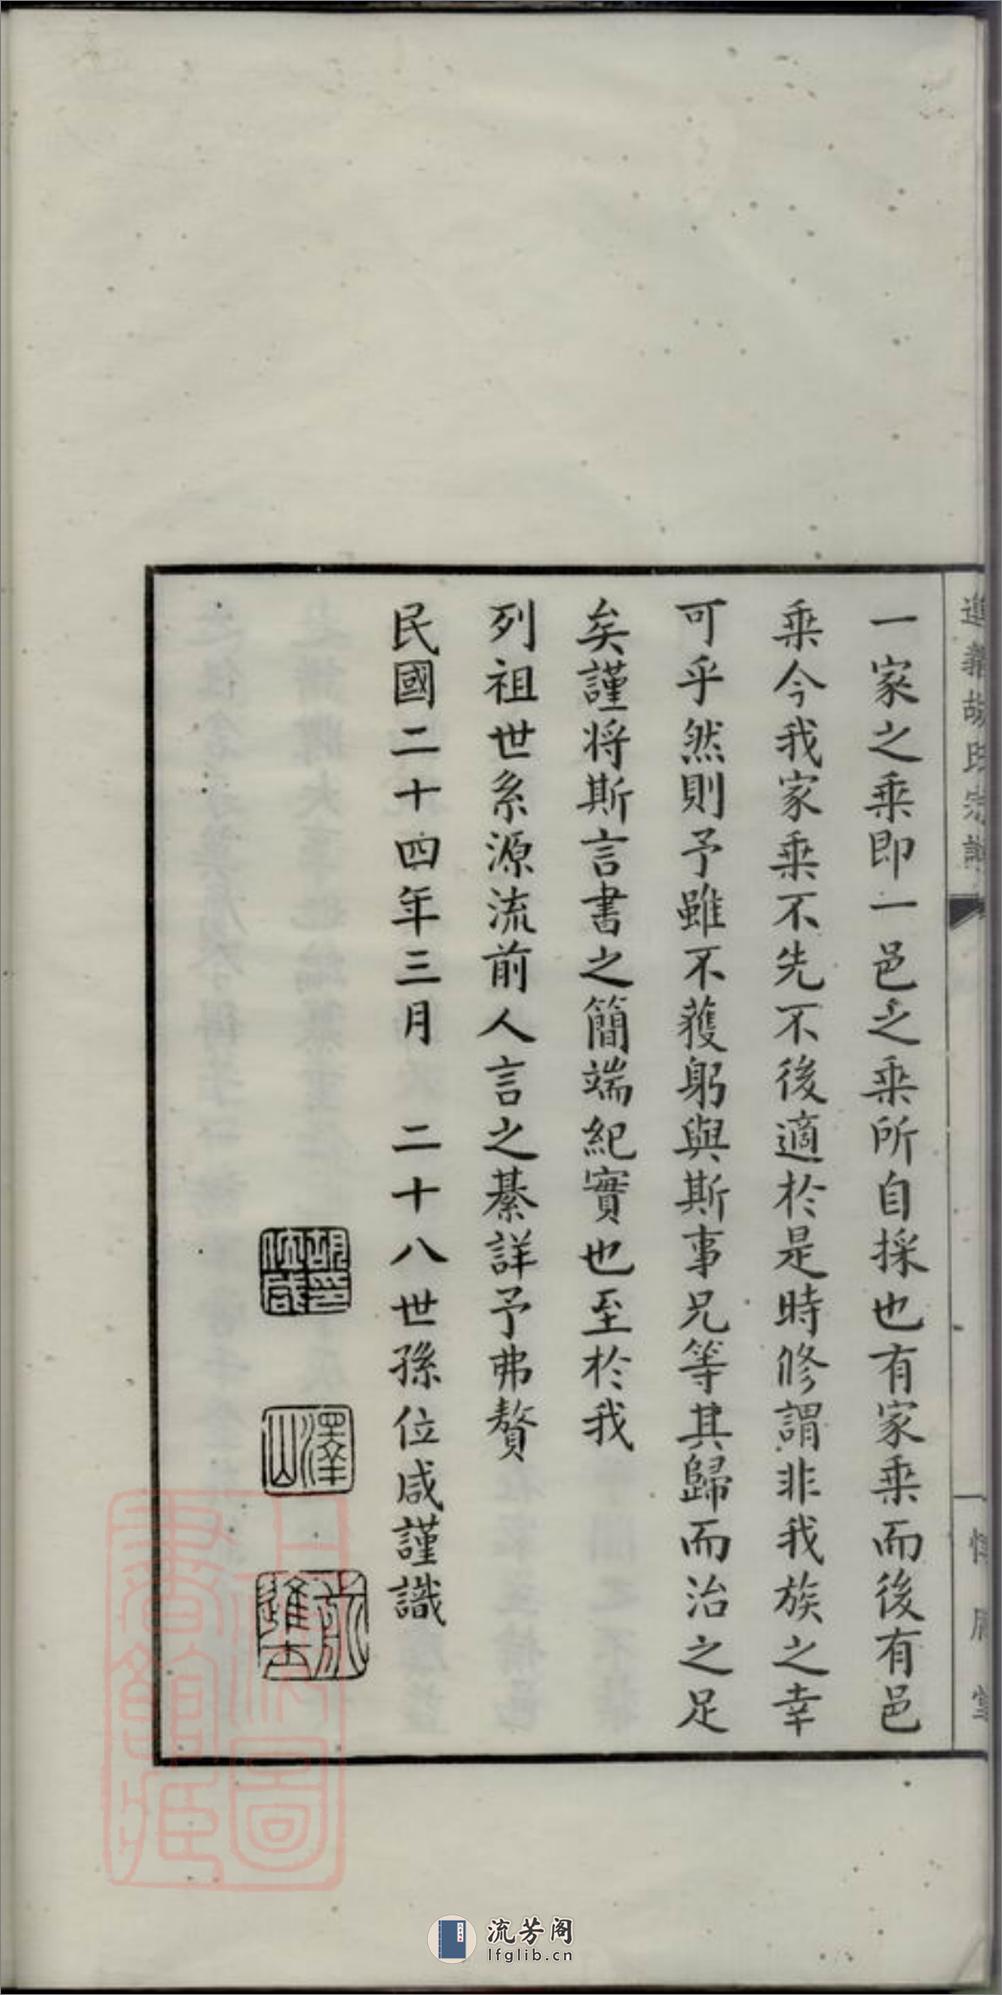 一家之乘即一邑之乘所自採也有家乘而後有邑
乘今我家乘不先不後適於是時修謂非我族之幸
可乎然則予雖不獲躬與斯事兄等其歸而治之足
矣謹將斯言書之簡端紀實也至於我
列祖世系源流前人言之綦詳予弗贅
民國二十四年三月 二十八世孫位咸謹識
胡印位咸
澤山
流芳阁
lfglib.cn